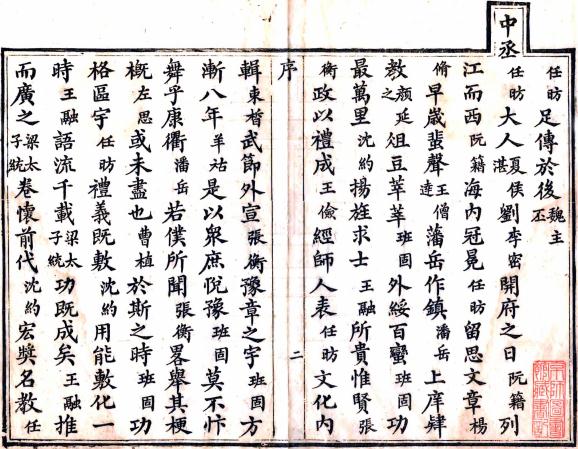 中丞
任昉足傳於後魏主丕
任昉大人夏侯湛劉李密開府之日阮籍列
江而西阮籍海內冠冕任昉留思文章楊
脩早歲蜚聲王僧達藩岳作鎮潘岳上庠肄
教顏延之俎豆莘莘班固外綏百蠻班固功
最萬里沈約揚旌求士王融所貴惟賢張
衡政以禮成王儉經師人表任昉文化內
序
二
輯束晳武節外宣張衡豫章之宇班固方
漸八年羊祜是以眾庶悅豫班固莫不忭
舞乎康衢潘岳若僕所聞張衡畧舉其梗
槪左思或未盡也曹植於斯之時班固功
格區宇任昉禮義既敷沈約用能敷化一
時王融語流千載梁太子統功既成矣王融推
而廣之梁太子統卷懷前代沈約宏獎名教任